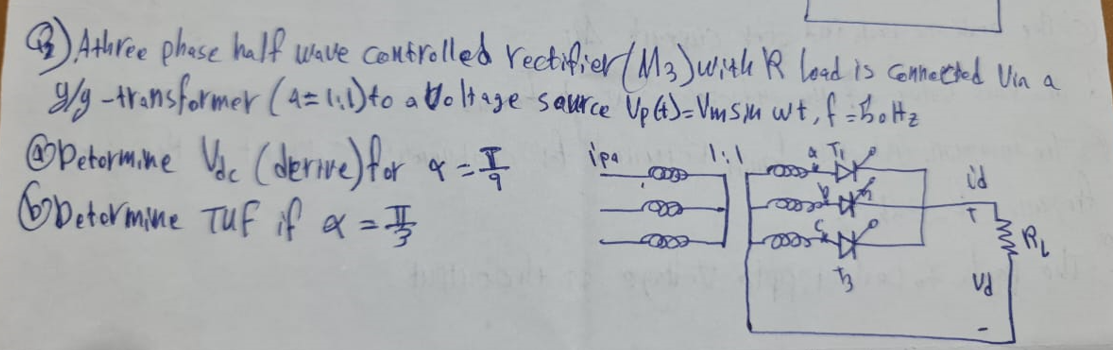 Q2) A three phase half wave controlled rectifier (M3) with R load is connected via a
y/y - transformer (a = 1:1) to a voltage source Vp(t) = Vm sin wt, f = 50 Hz
(a) Determine Vdc (derive) for α = π/9
(b) Determine TUF if α = π/3
ipa 1:1 a T1
id
b
c
RL
T3 Vd
-